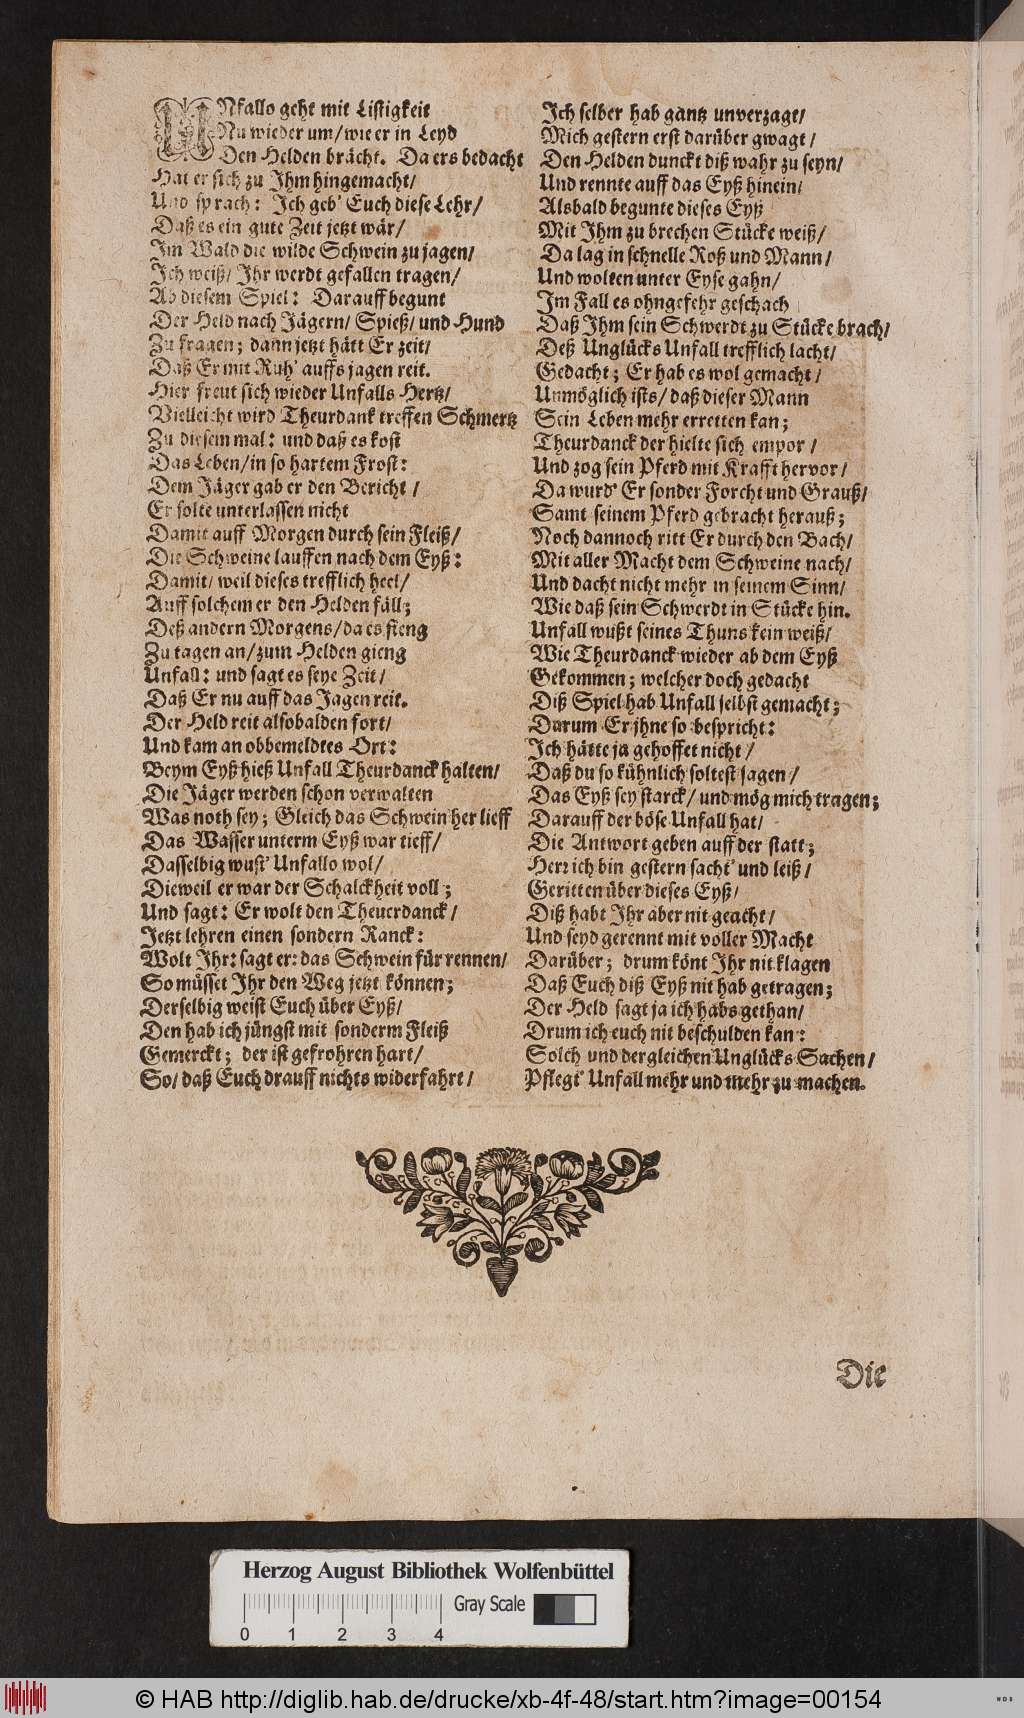 UNfallo geht mit Listigkeit
Nu wieder um/ wie er in Leyd
Den Helden brächt. Da ers bedacht
Hat er sich zu Ihm hingemacht/
Und sprach: Ich geb' Euch diese Lehr/
Daß es ein gute Zeit jetzt wär/
Im Wald die wilde Schwein zu jagen/
Ich weiß/ Ihr werdt gefallen tragen/
Ab diesem Spiel: Darauff begunt
Der Held nach Jägern/ Spieß/ und Hund
Zu fragen; dann jetzt hätt Er zeit/
Daß Er mit Ruh' auffs jagen reit.
Hier freut sich wieder Unfalls Hertz/
Vielleicht wird Theurdank treffen Schmertz
Zu diesem mal: und daß es kost
Das Leben/ in so hartem Frost:
Dem Jäger gab er den Bericht/
Er solte unterlassen nicht
Damit auff Morgen durch sein Fleiß/
Die Schweine lauffen nach dem Eyß:
Damit/ weil dieses trefflich heel/
Auff solchem er den Helden fäll;
Deß andern Morgens/ da es fieng
Zu tagen an/ zum Helden gieng
Unfall: und sagt es seye Zeit/
Daß Er nu auff das Jagen reit.
Der Held reit alsobalden fort/
Und kam an obbemeldtes Ort:
Beym Eyß hieß Unfall Theurdanck halten/
Die Jäger werden schon verwalten
Was noth sey; Gleich das Schwein her lieff
Das Wasser unterm Eyß war tieff/
Dasselbig wust' Unfallo wol/
Dieweil er war der Schalckheit voll;
Und sagt: Er wolt den Theuerdanck/
Jetzt lehren einen sondern Ranck:
Wolt Ihr: sagt er: das Schwein für rennen/
So müsset Ihr den Weg jetzt können;
Derselbig weist Euch über Eyß/
Den hab ich jüngst mit sonderm Fleiß
Gemerckt; der ist gefrohren hart/
So/ daß Euch drauff nichts widerfahrt/
Ich selber hab gantz unverzagt/
Mich gestern erst darüber gwagt/
Den Helden dunckt diß wahr zu seyn/
Und rennte auff das Eyß hinein/
Alsbald begunte dieses Eyß
Mit Ihm zu brechen Stücke weiß/
Da lag in schnelle Roß und Mann/
Und wolten unter Eyse gahn/
Im Fall es ohngefehr geschach
Daß Ihm sein Schwerdt zu Stücke brach/
Deß Unglücks Unfall trefflich lacht/
Gedacht; Er hab es wol gemacht/
Unmöglich ists/ daß dieser Mann
Sein Leben mehr erretten kan;
Theurdanck der hielte sich empor/
Und zog sein Pferd mit Krafft hervor/
Da wurd' Er sonder Forcht und Grauß/
Samt seinem Pferd gebracht herauß;
Noch dannoch ritt Er durch den Bach/
Mit aller Macht dem Schweine nach/
Und dacht nicht mehr in seinem Sinn/
Wie daß sein Schwerdt in Stücke hin.
Unfall wußt seines Thuns kein weiß/
Wie Theurdanck wieder ab dem Eyß
Gekommen; welcher doch gedacht
Diß Spiel hab Unfall selbst gemacht;
Darum Er jhne so bespricht:
Ich hätte ja gehoffet nicht/
Daß du so kühnlich soltest sagen/
Das Eyß sey starck/ und mög mich tragen;
Darauff der böse Unfall hat/
Die Antwort geben auff der statt;
Herr ich bin gestern sacht' und leiß/
Geritten über dieses Eyß/
Diß habt Ihr aber nit geacht/
Und seyd gerennt mit voller Macht
Darüber; drum könt Ihr nit klagen
Daß Euch diß Eyß nit hab getragen;
Der Held sagt ja ich habs gethan/
Drum ich euch nit beschulden kan:
Solch und dergleichen Unglücks Sachen/
Pflegt' Unfall mehr und mehr zu machen.
Die
Herzog August Bibliothek Wolfenbüttel
Gray Scale
0 1 2 3 4
© HAB http://diglib.hab.de/drucke/xb-4f-48/start.htm?image=00154